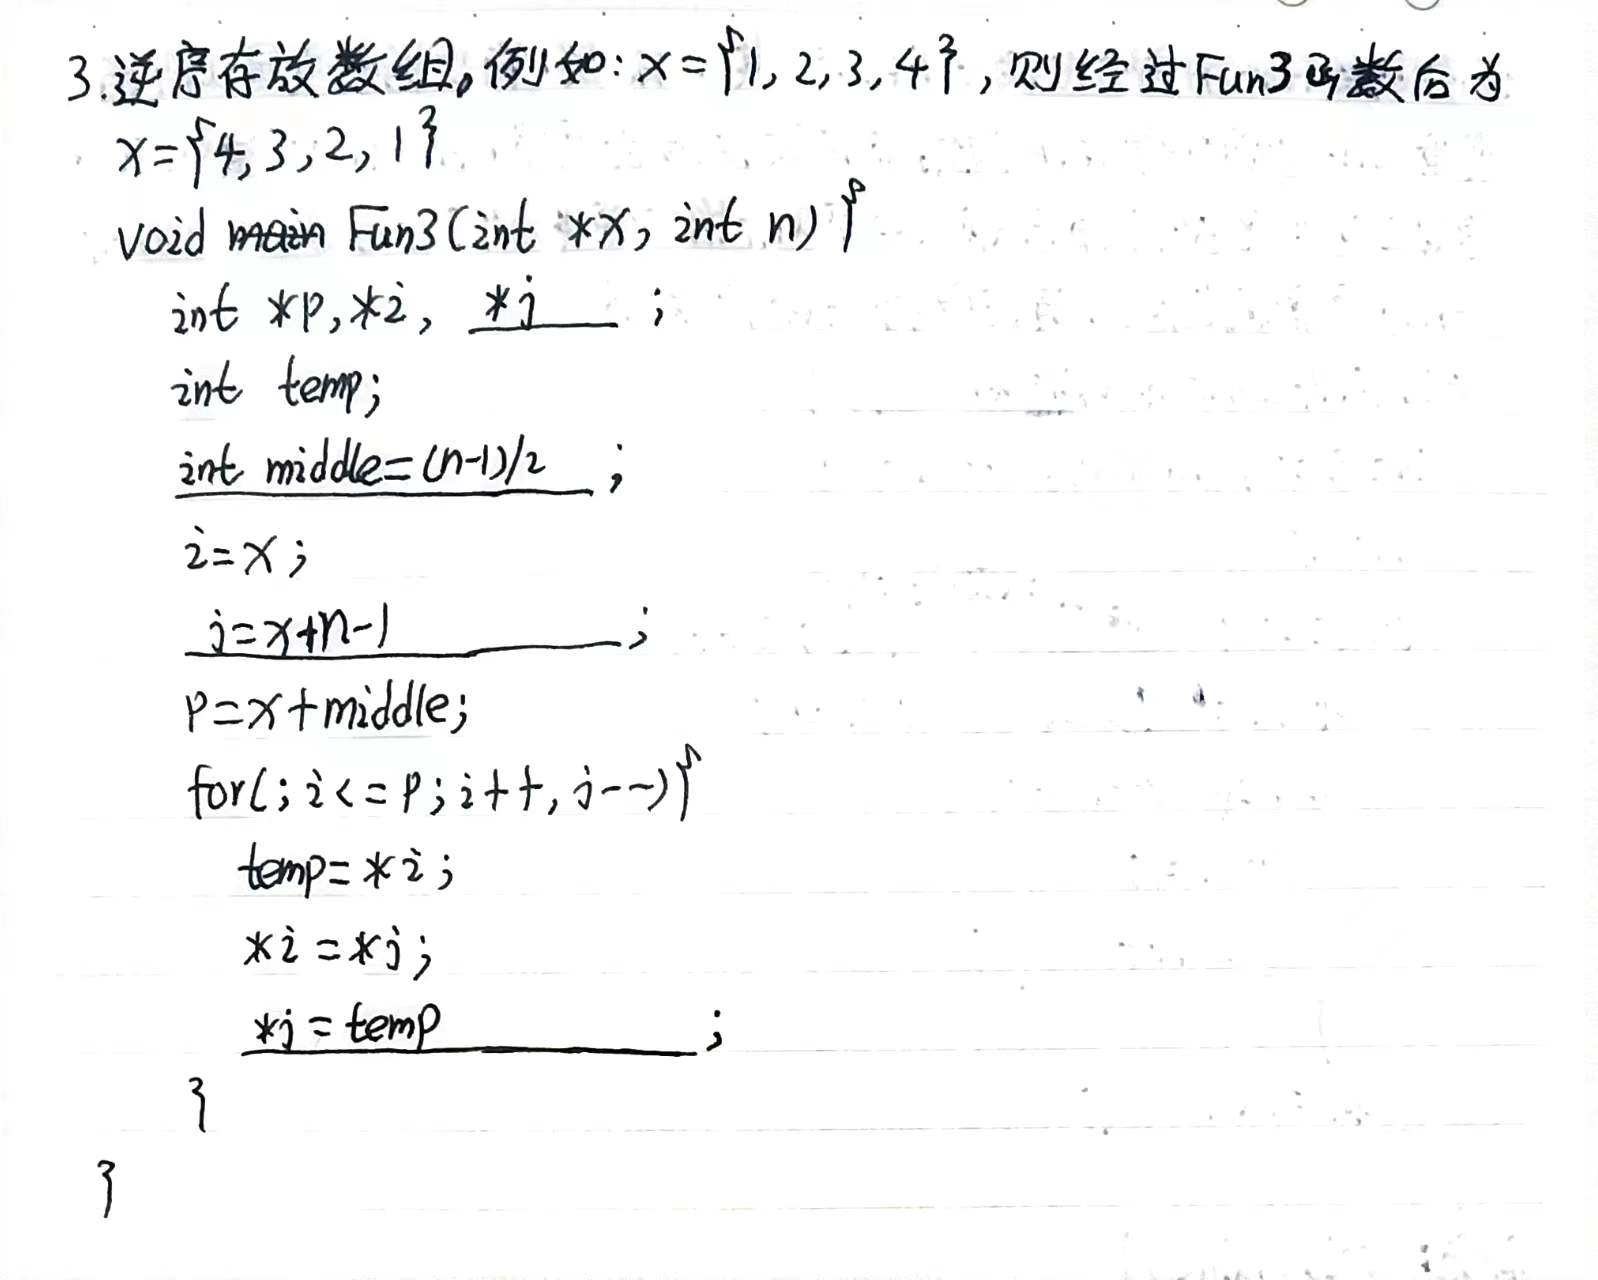 3.逆序存放数组。例如:x={1,2,3,4},则经过Fun3函数后为
x={4,3,2,1}
void main Fun3(int *x, int n){
int *p,*i, *j ;
int temp;
int middle=(n-1)/2 ;
i=x;
j=x+n-1 ;
p=x+middle;
for(;i<=p;i++,j--){
temp=*i;
*i=*j;
*j=temp ;
}
}